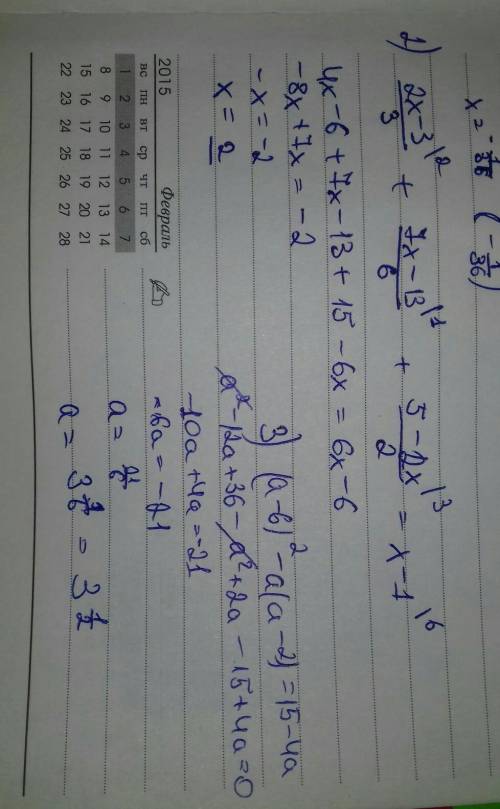 x = -1/36 (-1/36)
2) 2x-3/3 \2 + 7x-13/6 \1 + 5-2x/2 \3 = x-1 \6
4x-6+7x-13+15-6x = 6x-6
-8x+7x = -2
-x = -2
x = 2
3) (a-6)² - a(a-2) = 15-4a
a²-12a+36-a²+2a-15+4a=0
-10a+4a=-21
-6a = -21
a = 21/6
a = 3 3/6 = 3 1/2
2015 Февраль
вс пн вт ср чт пт сб
1 2 3 4 5 6 7
8 9 10 11 12 13 14
15 16 17 18 19 20 21
22 23 24 25 26 27 28